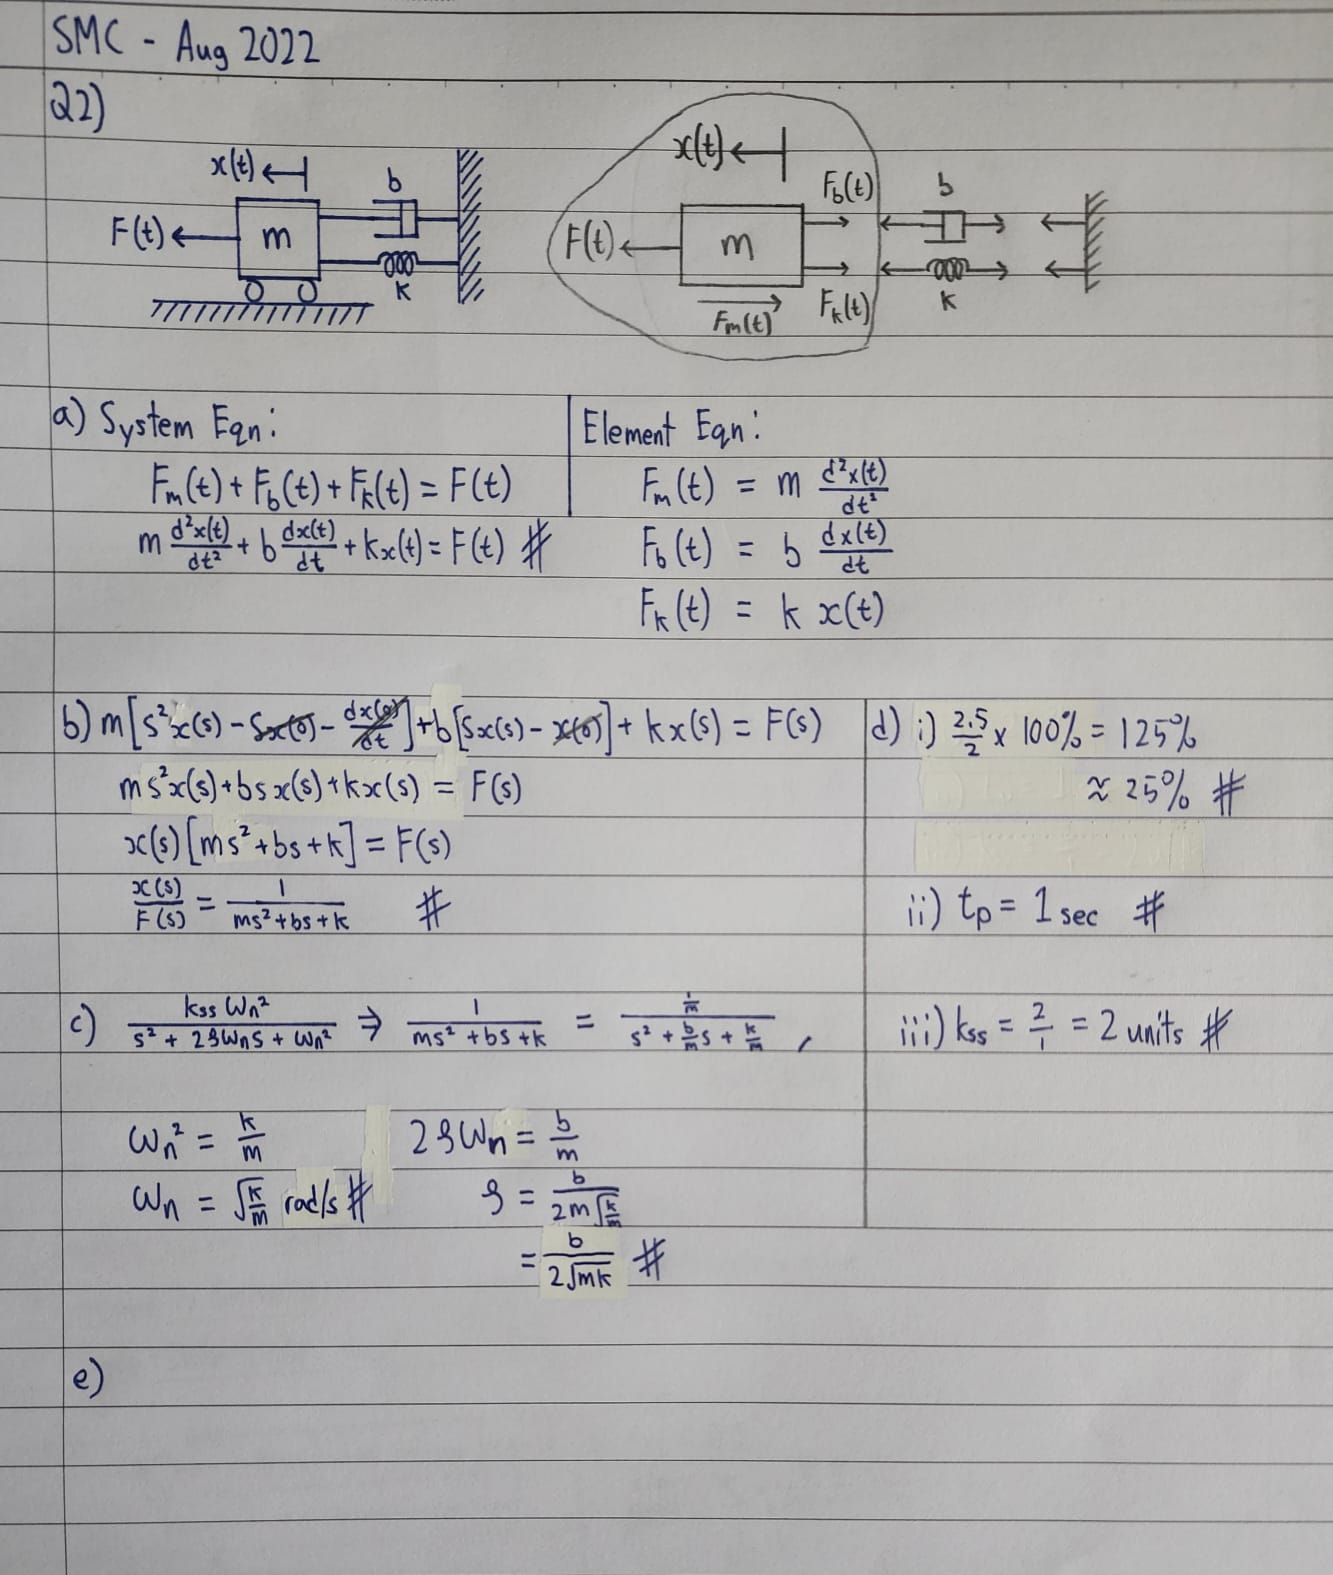 SMC - Aug 2022
Q2)
x(t)
b
F(t)
m
k
x(t)
F_b(t)
b
F(t)
m
F_m(t)
F_k(t)
k
a) System Eqn:
F_m(t) + F_b(t) + F_k(t) = F(t)
m d²x(t)/dt² + b dx(t)/dt + kx(t) = F(t) #
Element Eqn:
F_m(t) = m d²x(t)/dt²
F_b(t) = b dx(t)/dt
F_k(t) = k x(t)
b) m[s²x(s) - sx(0) - dx(0)/dt] + b[sx(s) - x(0)] + kx(s) = F(s)
ms²x(s) + bsx(s) + kx(s) = F(s)
x(s)[ms² + bs + k] = F(s)
x(s)/F(s) = 1/(ms² + bs + k) #
c) kss ωn²/(s² + 2ζωns + ωn²) ⇒ 1/(ms² + bs + k) = (1/m)/(s² + b/m s + k/m) ,
ωn² = k/m
ωn = √(k/m) rad/s #
2ζωn = b/m
ζ = b/(2m√(k/m))
= b/(2√mk) #
d) i) 2.5/2 x 100% = 125%
≈ 25% #
ii) tp = 1 sec #
iii) kss = 2/1 = 2 units #
e)